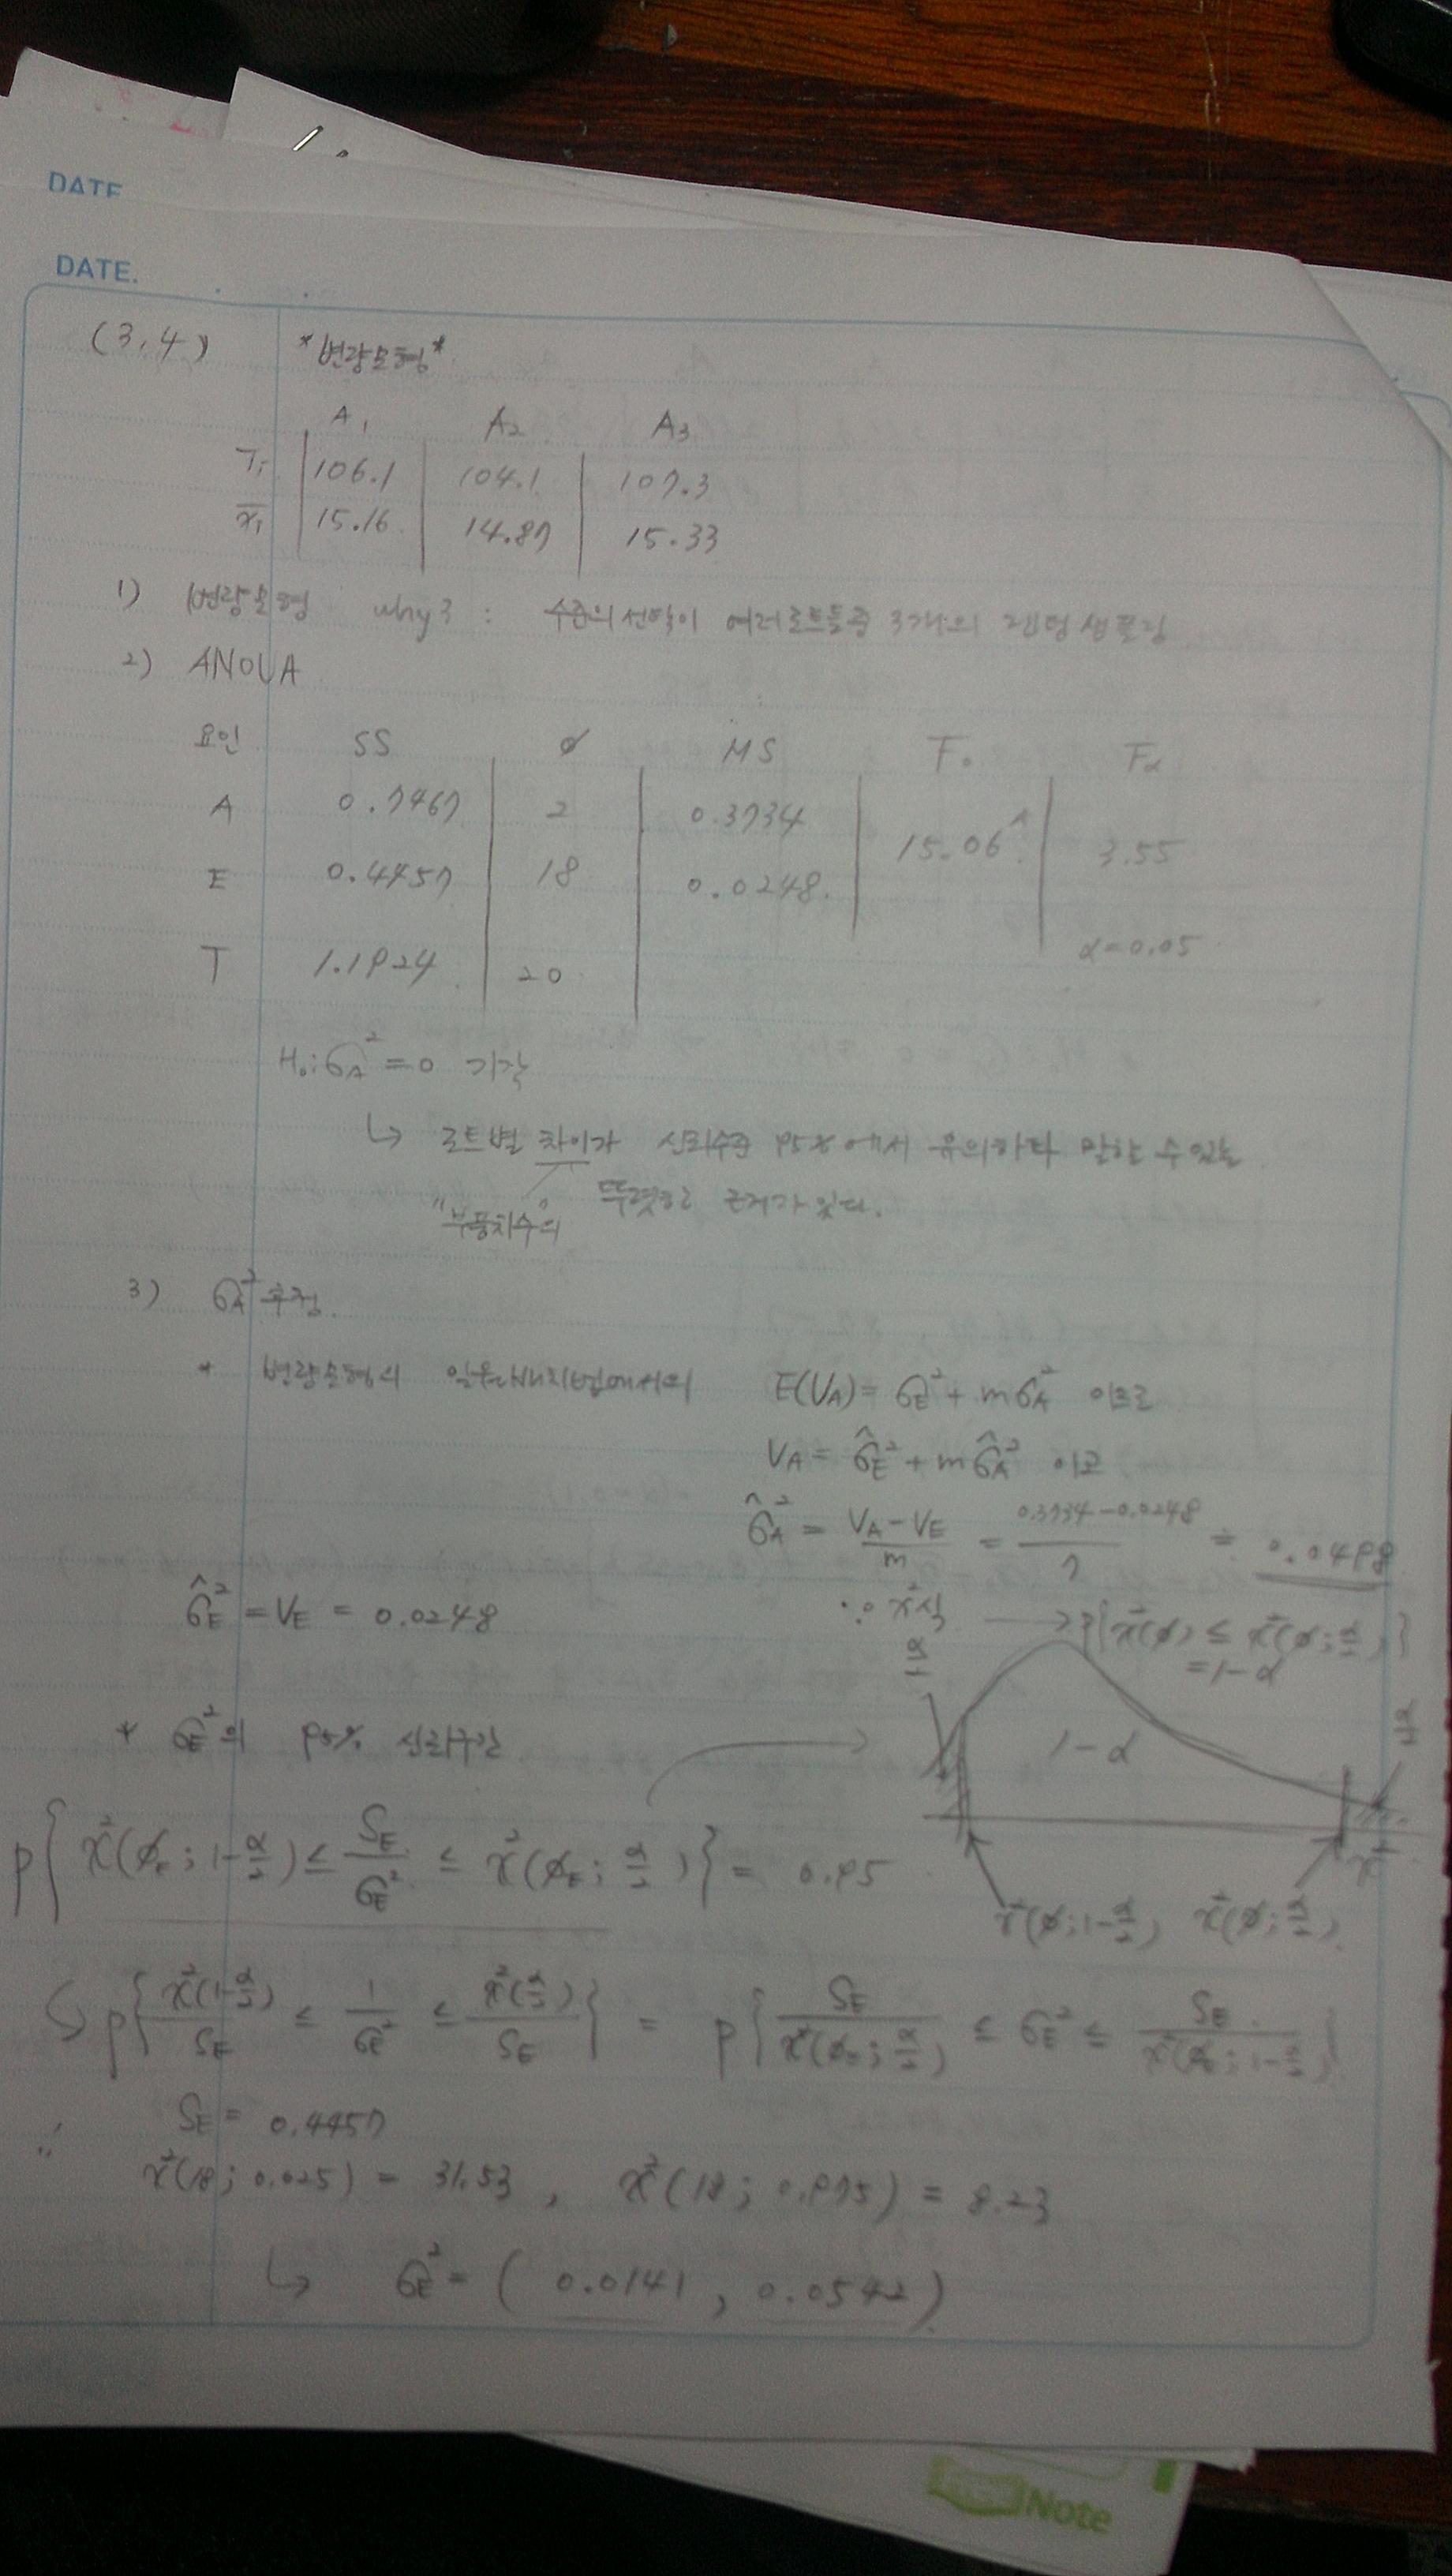 DATE
DATE.
(3.4) *변량모형*
A1 A2 A3
Ti 106.1 104.1 107.3
x̄i 15.16 14.87 15.33
1) 변량모형 why? : 수준의 선택이 여러로트들중 3개의 랜덤샘플링
2) ANOVA
요인 SS ∅ MS F₀ Fα
A 0.7467 2 0.3734 15.06* 3.55
E 0.4457 18 0.0248
α=0.05
T 1.1924 20
H₀: σA² = 0 기각
↳ 로트별 차이가 신뢰수준 95%에서 유의하다 말할 수 있는
"부품치수의" 뚜렷한 근거가 있다.
3) σA² 추정.
* 변량모형의 일원배치법에서의 E(VA) = σE² + mσA² 이므로
VA = σ̂E² + mσ̂A² 이고
σ̂A² = (VA - VE)/m = (0.3734 - 0.0248)/7 ≒ 0.0498
σ̂E² = VE = 0.0248
∵ χ²식 → P{χ²(∅) ≤ χ²(∅; α/2)}
= 1-α
α/2
* σE²의 95% 신뢰구간
1-α
α/2
P{χ²(∅E; 1-α/2) ≤ SE/σE² ≤ χ²(∅E; α/2)} = 0.95
χ²
χ²(∅; 1-α/2) χ²(∅; α/2)
↳ P{χ²(1-α/2)/SE ≤ 1/σE² ≤ χ²(α/2)/SE} = P{SE/χ²(∅E; α/2) ≤ σE² ≤ SE/χ²(∅E; 1-α/2)}
SE = 0.4457
∴ χ²(18; 0.025) = 31.53, χ²(18; 0.975) = 8.23
↳ σE² = (0.0141, 0.0542)
Note